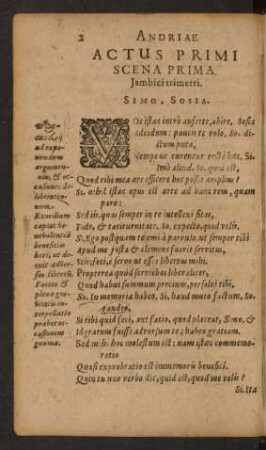 2 ANDRIAE
ACTUS PRIMI
SCENA PRIMA.
Jambici trimetri.
SIMO, SOSIA.
VOs istæc intrò auferte, abite, Sosia
adesdum: paucis te volo, So. dictum puta,
Nempe ut curentur rectè hæc, Si.
imò aliud. So. quid est,
Quod tibi mea ars efficere hoc possit amplius?
Si. nihil istac opus est arte ad hanc rem, quam
paro:
Sed iis, quas semper in te intellexi sitas,
Fide, & taciturnitate, So. expecto, quid velis.
Si. Ego postquam te emi à parvulo, ut semper tibi
Apud me justa & clemens fuerit servitus,
Scis: feci, è servo ut esses libertus mihi,
Propterea quòd serviebas liberaliter,
Quod habui summum precium, persolvi tibi,
So. In memoria habeo, Si. haud muto factum, So.
gaudeo,
Si tibi quid feci, aut facio, quod placeat, Simo, &
Id gratum fuisse adversum te; habeo gratiam.
Sed mihi hoc molestum est: nam istæc commemoratio
Quasi exprobratio est immemoris beneficii.
Quin tu uno verbo dic, quid est, quod me velis?
Si. Ita
ad exponendum
argumentum, &
Exordium
captat benevolentiæ
beneficio